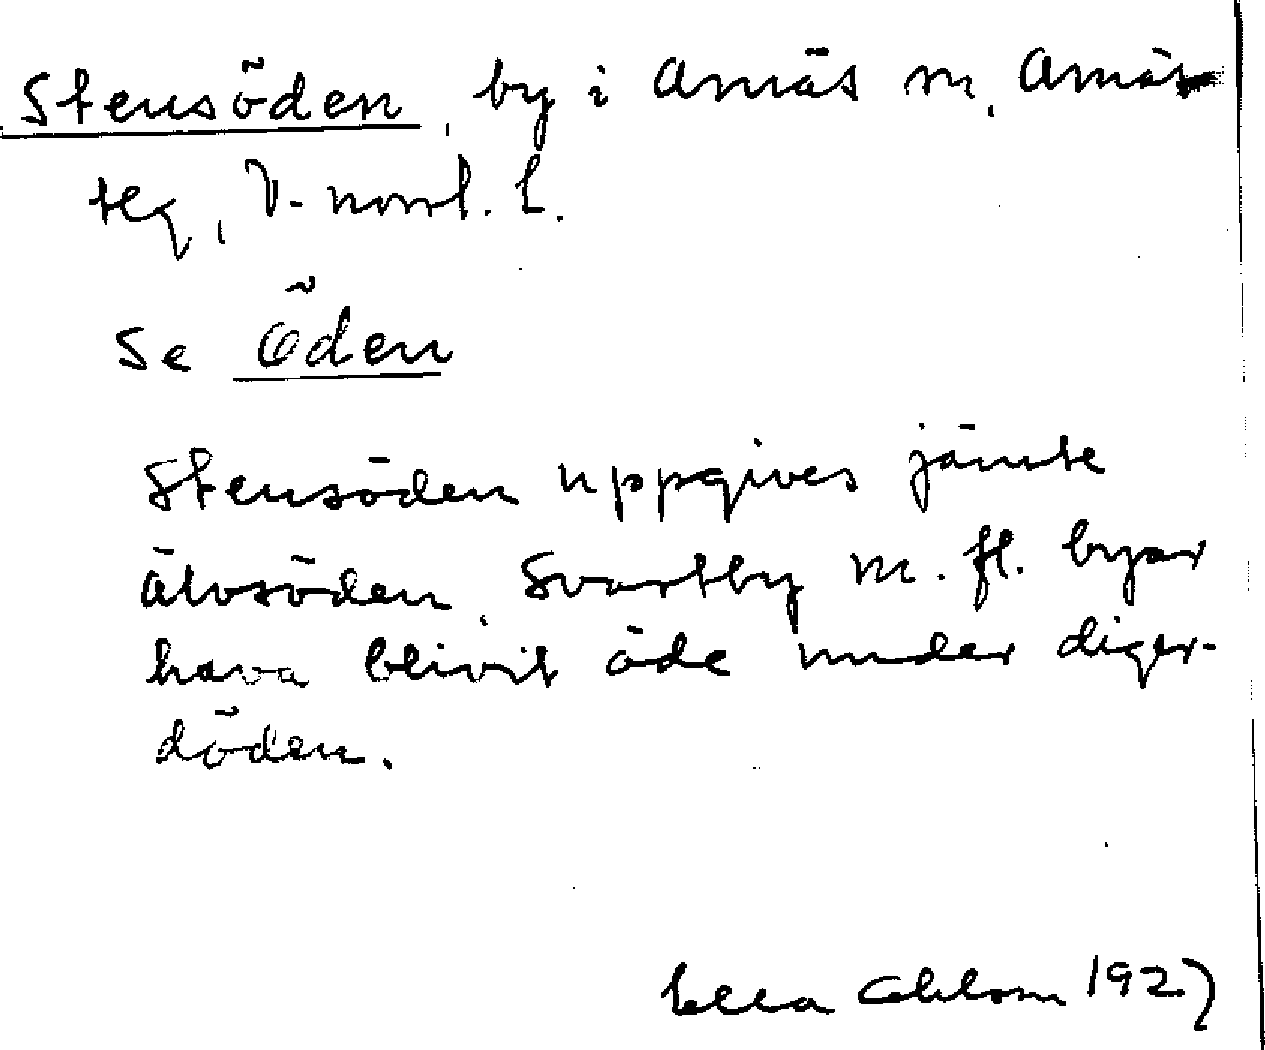 Stensöden, by i Arnäs sn, Arnäs
tlg, V-norrl. l.
Se Öden
Stensöden uppgives jämte
Älvsöden, Svartby m. fl. byar
hava blivit öde under diger-
döden.
Ella 1927